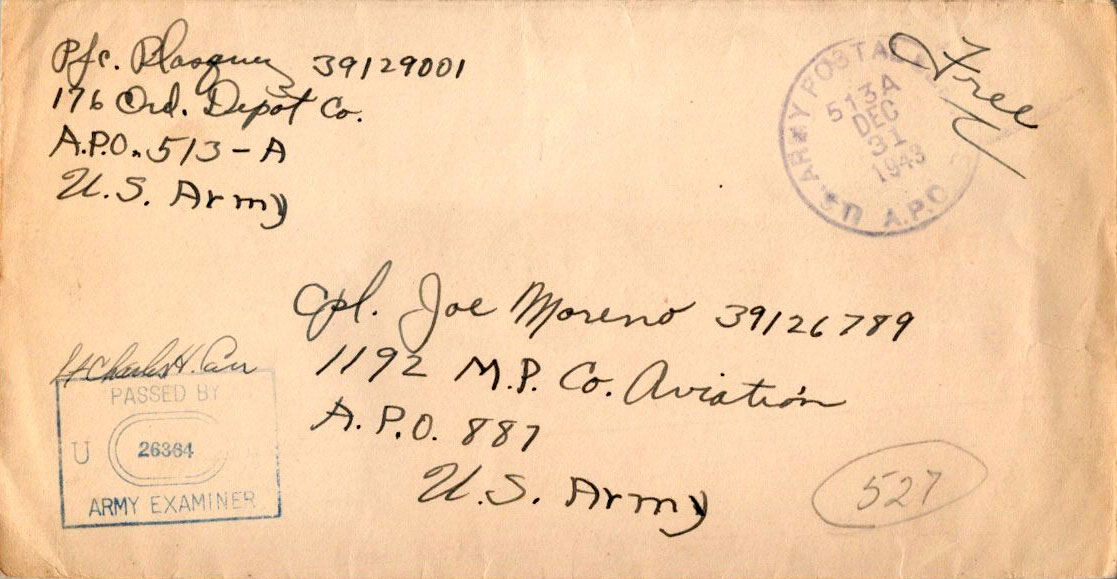 Pfc. Blasquez 39129001
176 Ord. Depot Co.
A.P.O. 513-A
U.S. Army
Free
U.S. ARMY POSTAL
513A
DEC
31
1943
A.P.O.
Cpl. Joe Moreno 39126789
1192 M.P. Co. Aviation
A.P.O. 887
U.S. Army
Lt Charles H. Carr
PASSED BY
U
26364
ARMY EXAMINER
527